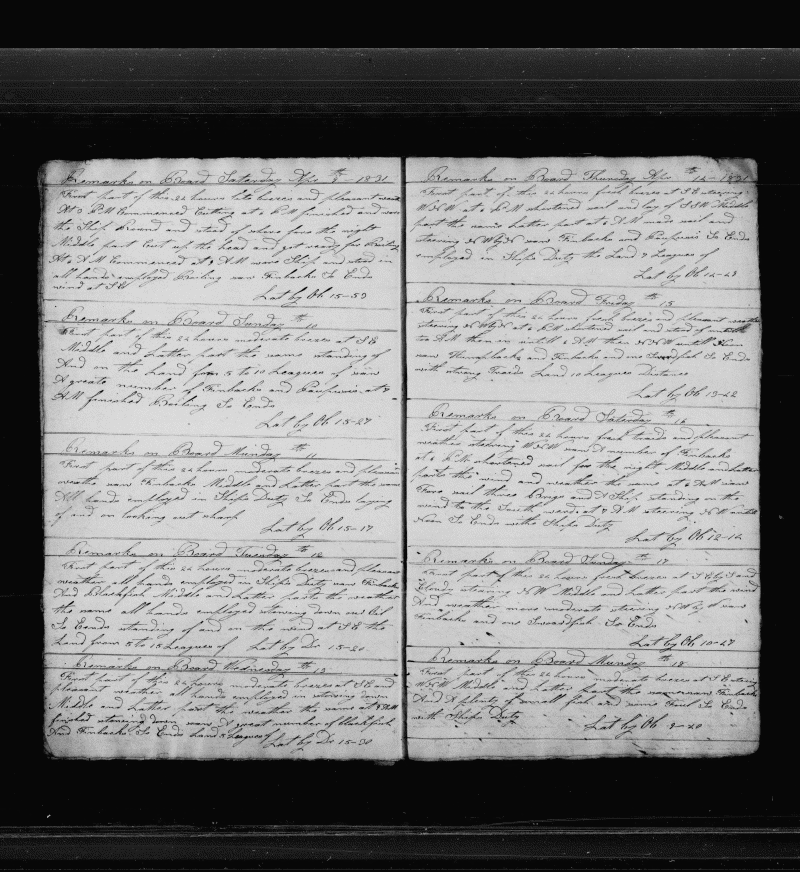 Remarks on Board Saturday Apl 9th 1831
First part of this 24 hours lite breezes and pleasant weather
At 2 PM Commenced Cutting at 6 PM finished and wore
the Ship Round and stood of shore for the night
Middle part Cut up the head and got ready for Boiling
At 6 AM Commenced at 9 AM wore Ship and stood in
all hands employed Boiling saw Finbacks So Ends
wind at SE
Lat by Ob 15-59
Remarks on Board Sunday th 10
First part of this 24 hours moderate breezes at SE
Middle and Latter part the same standing of
And on the Land from 5 to 10 Leagues of saw
A greate number of Finbacks and at 8
AM finished Boiling So Ends
Lat by Ob 15-27
Remarks on Board Munday th 11
First part of this 24 hours moderate breezes and pleasant
weather saw Finbacks Middle and Latter part the same
All hands employed in Ships Duty So Ends laying
of and on looking out sharp
Lat by Ob 15-17
Remarks on Board Tuesday th 12
First part of this 24 hours moderate breezes and pleasant
weather all hands employed in Ships Duty saw Finbacks
And Blackfish Middle and Latter parts the weather
the same all hands employed stowing down our Oil
So Ends standing of and in the wind at SE the
Land from 5 to 15 Leagues of Lat by Dr 15-20
Remarks on Board Wednesday th 13
First part of this 24 hours moderate breezes at SE and
pleasant weather all hands employed in stowing down
Middle and Latter part the weather the same at AM
finished stowing down saw A great number of blackfish
And Finbacks So Ends Land Leagues of Lat by Dr 15-30
Remarks on Board Thursday Apl th 14-1831
First part of this 24 hours fresh breezes at SE steering
WNW at 6 PM shortened sail and lay of SSW Middle
part the same Latter part at 6 AM made sail and
steering NWbyN saw Finbacks and So Ends
employed in Ships Duty the Land 7 Leagues of
Lat by Ob 14-28
Remarks on Board Friday th 15
First part of this 24 hours fresh breezes and pleasant weather
steering NWbyN at 6 PM shortened sail and stood of untill
AM then in untill 6 AM then NNW untill Noon
saw Humpbacks and Finbacks and one Swordfish So Ends
with strong Trades Land 10 Leagues Distance
Lat by Ob 13-22
Remarks on Board Saturday th 16
First part of this 24 hours fresh trades and pleasant
weather steering WNW saw A number of Finbacks
at 6 PM shortened sail for the night Middle and Latter
parts the wind and weather the same at 6 AM saw
Four sail three Brigs and A Ship standing on the
wind to the South wards at 7 AM steering NW untill
Noon So Ends with Ships Duty
Lat by Ob 12-14
Remarks on Board Sunday th 17
First part of this 24 hours fresh breezes at SEbyS and
Cloudy steering NW Middle and Latter part the wind
And weather more moderate steering NWbyW saw
Finbacks and one Swoardfish So Ends
Lat by Ob 10-27
Remarks on Board Munday th 18
First part of this 24 hours moderate breezes at SE steering
WNW Middle and Latter part the same saw Finbacks
And A plenty of small fish and some Foul So Ends
with Ships Duty
Lat by Ob 9-20